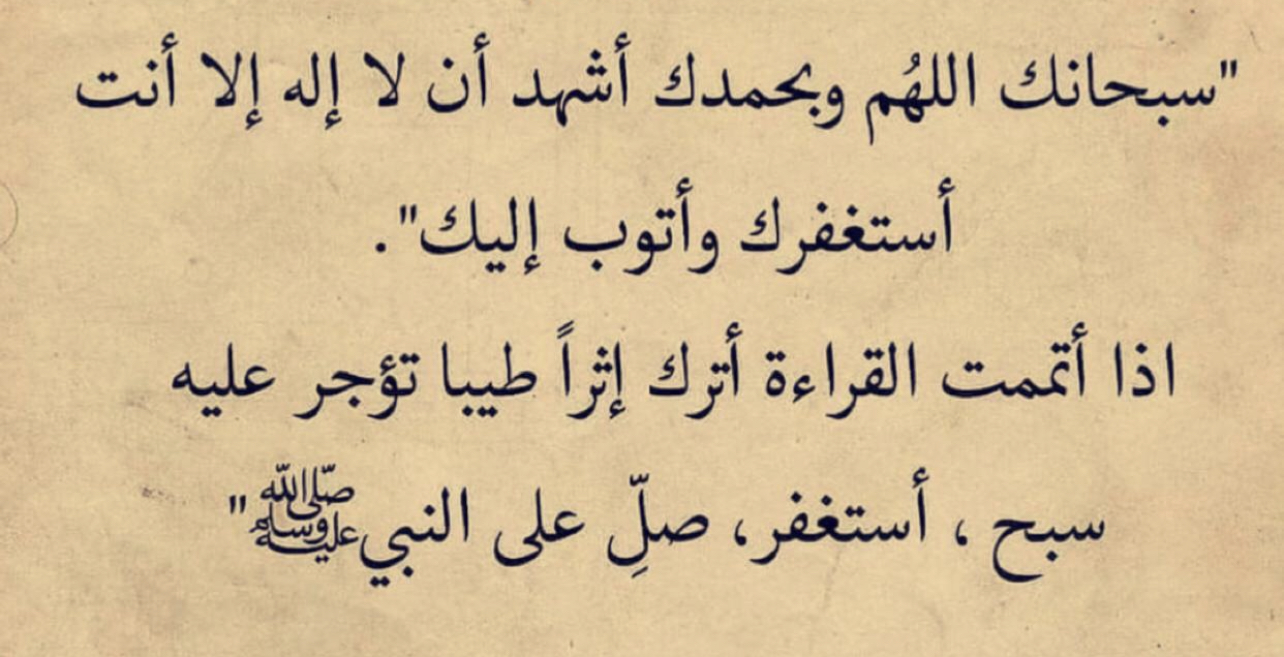 "سبحانك اللهُم وبحمدك أشهد أن لا إله إلا أنت
أستغفرك وأتوب إليك".
اذا أتممت القراءة أترك إثراً طيبا تؤجر عليه
سبح ، أستغفر، صلِّ على النبي ﷺ"